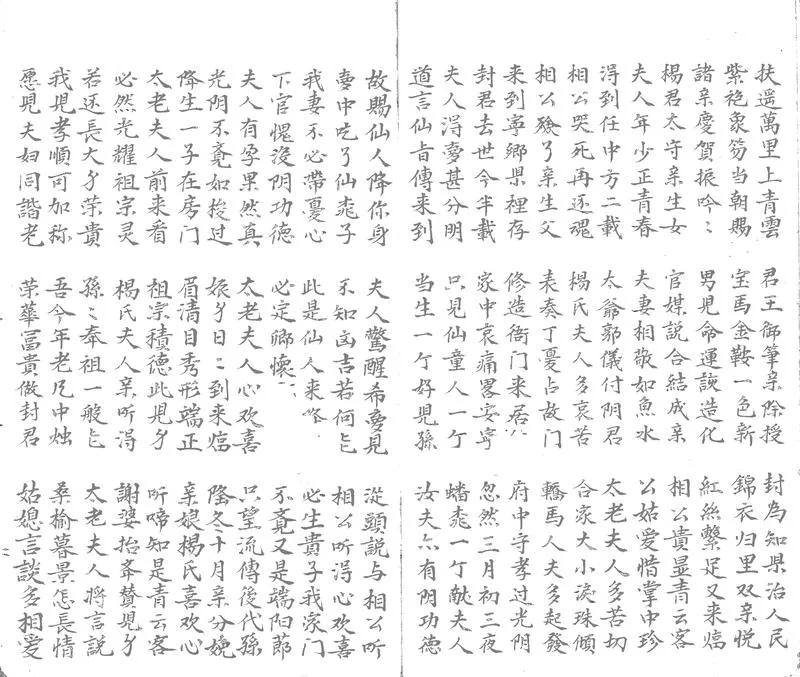 扶遥萬里上青雲 君王御筆亲除授 封為知県治人民
紫袍象笏当朝賜 宝馬金鞍一色新 錦衣归里双亲悦
諸亲慶賀振吟々 男児命運談造化 紅絲繫足又来臨
楊君太守亲生女 官媒説合結成亲 相公貴显青云客
夫人年少正青春 夫妻相敬如魚水 公姑愛惜掌中珍
淂到任中方二載 太爺郭儀付阴君 太老夫人多苦切
相公哭死再还魂 楊氏夫人多哀苦 合家大小淚珠傾
相公殮了亲生父 表奏丁憂占故门 轎馬人夫多起發
来到寧鄉県裡存 修造衙门来居 府中守孝过光阴
封君去世今半載 家中哀痛畧安寧 忽然三月初三夜
夫人淂夢甚分明 只见仙童人一个 蟠桃一个献夫人
道言仙旨傳来到 当生一个好児孫 汝夫亦有阴功德
故賜仙人降你身 夫人驚醒希夢見 從頭説与相公听
夢中吃了仙桃子 不知凶吉若何 相公听淂心欢喜
我妻不必带憂心 此是仙人来 必生貴子我家门
下官愧没阴功德 必定卿懷 不竟又是端阳節
夫人有孕果然真 太老夫人心欢喜 只望流傳後代孫
光阴不竟如梭过 娘々日々到来臨 隆冬十月亲分娩
降生一子在房门 眉清目秀形端正 亲娘楊氏喜欢心
太老夫人前来看 祖宗積德此児 听啼知是青云客
必然光耀祖宗灵 楊氏夫人亲听淂 謝婆抬举賛児
若还長大荣貴 孫々奉祖一般 太老夫人将言説
我児孝順可加称 吾今年老凡中烛 桑榆暮景怎長情
愿見夫妇同諧老 荣華冨貴做封君 姑媳言談多相愛